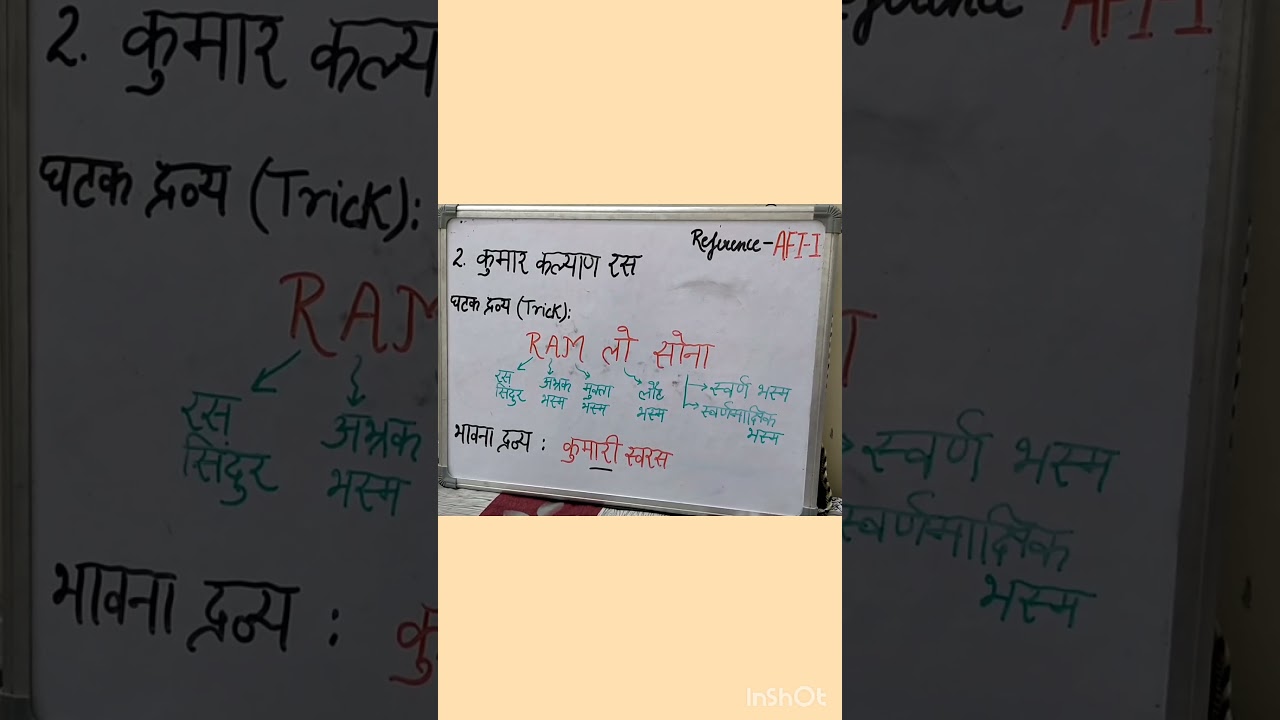 Reference-AFI-I
2. कुमार कल्याण रस
घटक द्रव्य (Trick):
RAM लो सोना
रस सिंदुर
अभ्रक भस्म
मुक्ता भस्म
लौह भस्म
स्वर्ण भस्म
स्वर्णमाक्षिक भस्म
भावना द्रव्य : कुमारी स्वरस
InShOt